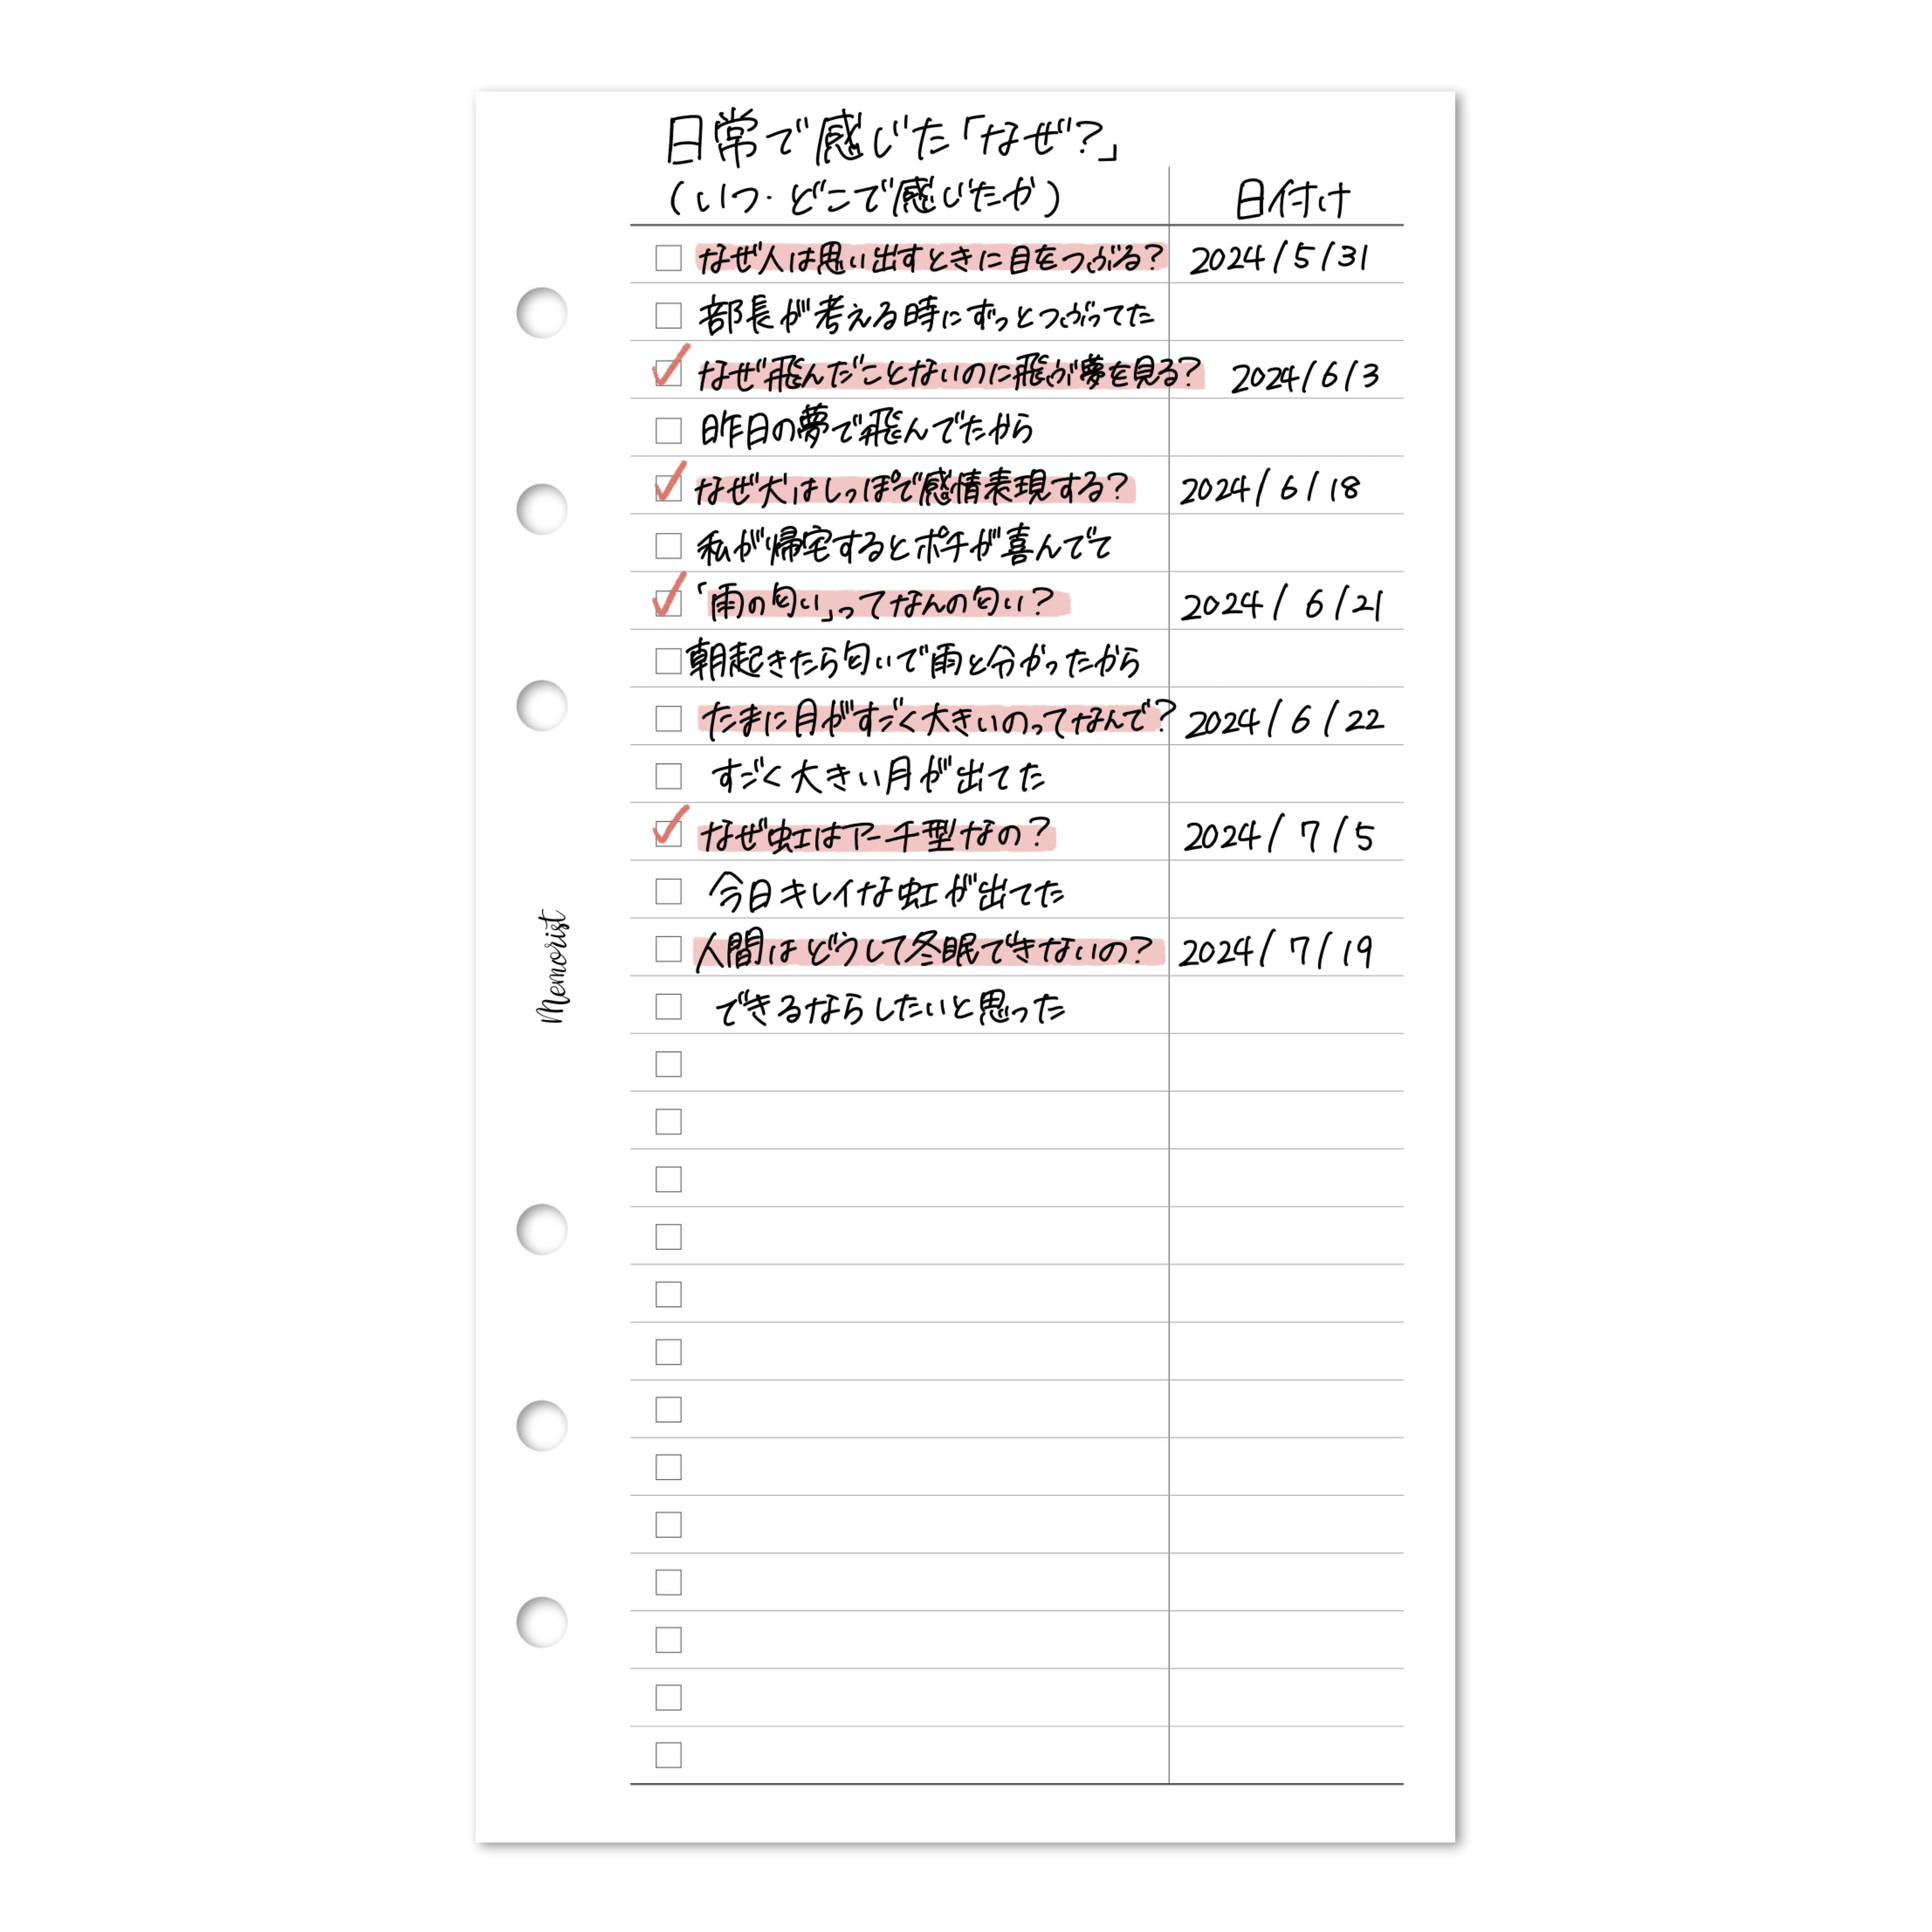 日常で感じた「なぜ?」
(いつ・どこで感じたか) 日付け
なぜ人は思い出すときに目をつぶる? 2024/5/31
部長が考える時にずっとつぶってた
なぜ飛んだことないのに飛ぶ夢を見る? 2024/6/3
昨日の夢で飛んでたから
なぜ犬はしっぽで感情表現する? 2024/6/18
私が帰宅するとポチが喜んでて
「雨の匂い」ってなんの匂い? 2024/6/21
朝起きたら匂いで雨と分かったから
たまに月がすごく大きいのってなんで? 2024/6/22
すごく大きい月が出てた
なぜ虹はアーチ型なの? 2024/7/5
今日キレイな虹が出てた
人間はどうして冬眠できないの? 2024/7/19
できるならしたいと思った
Memorist